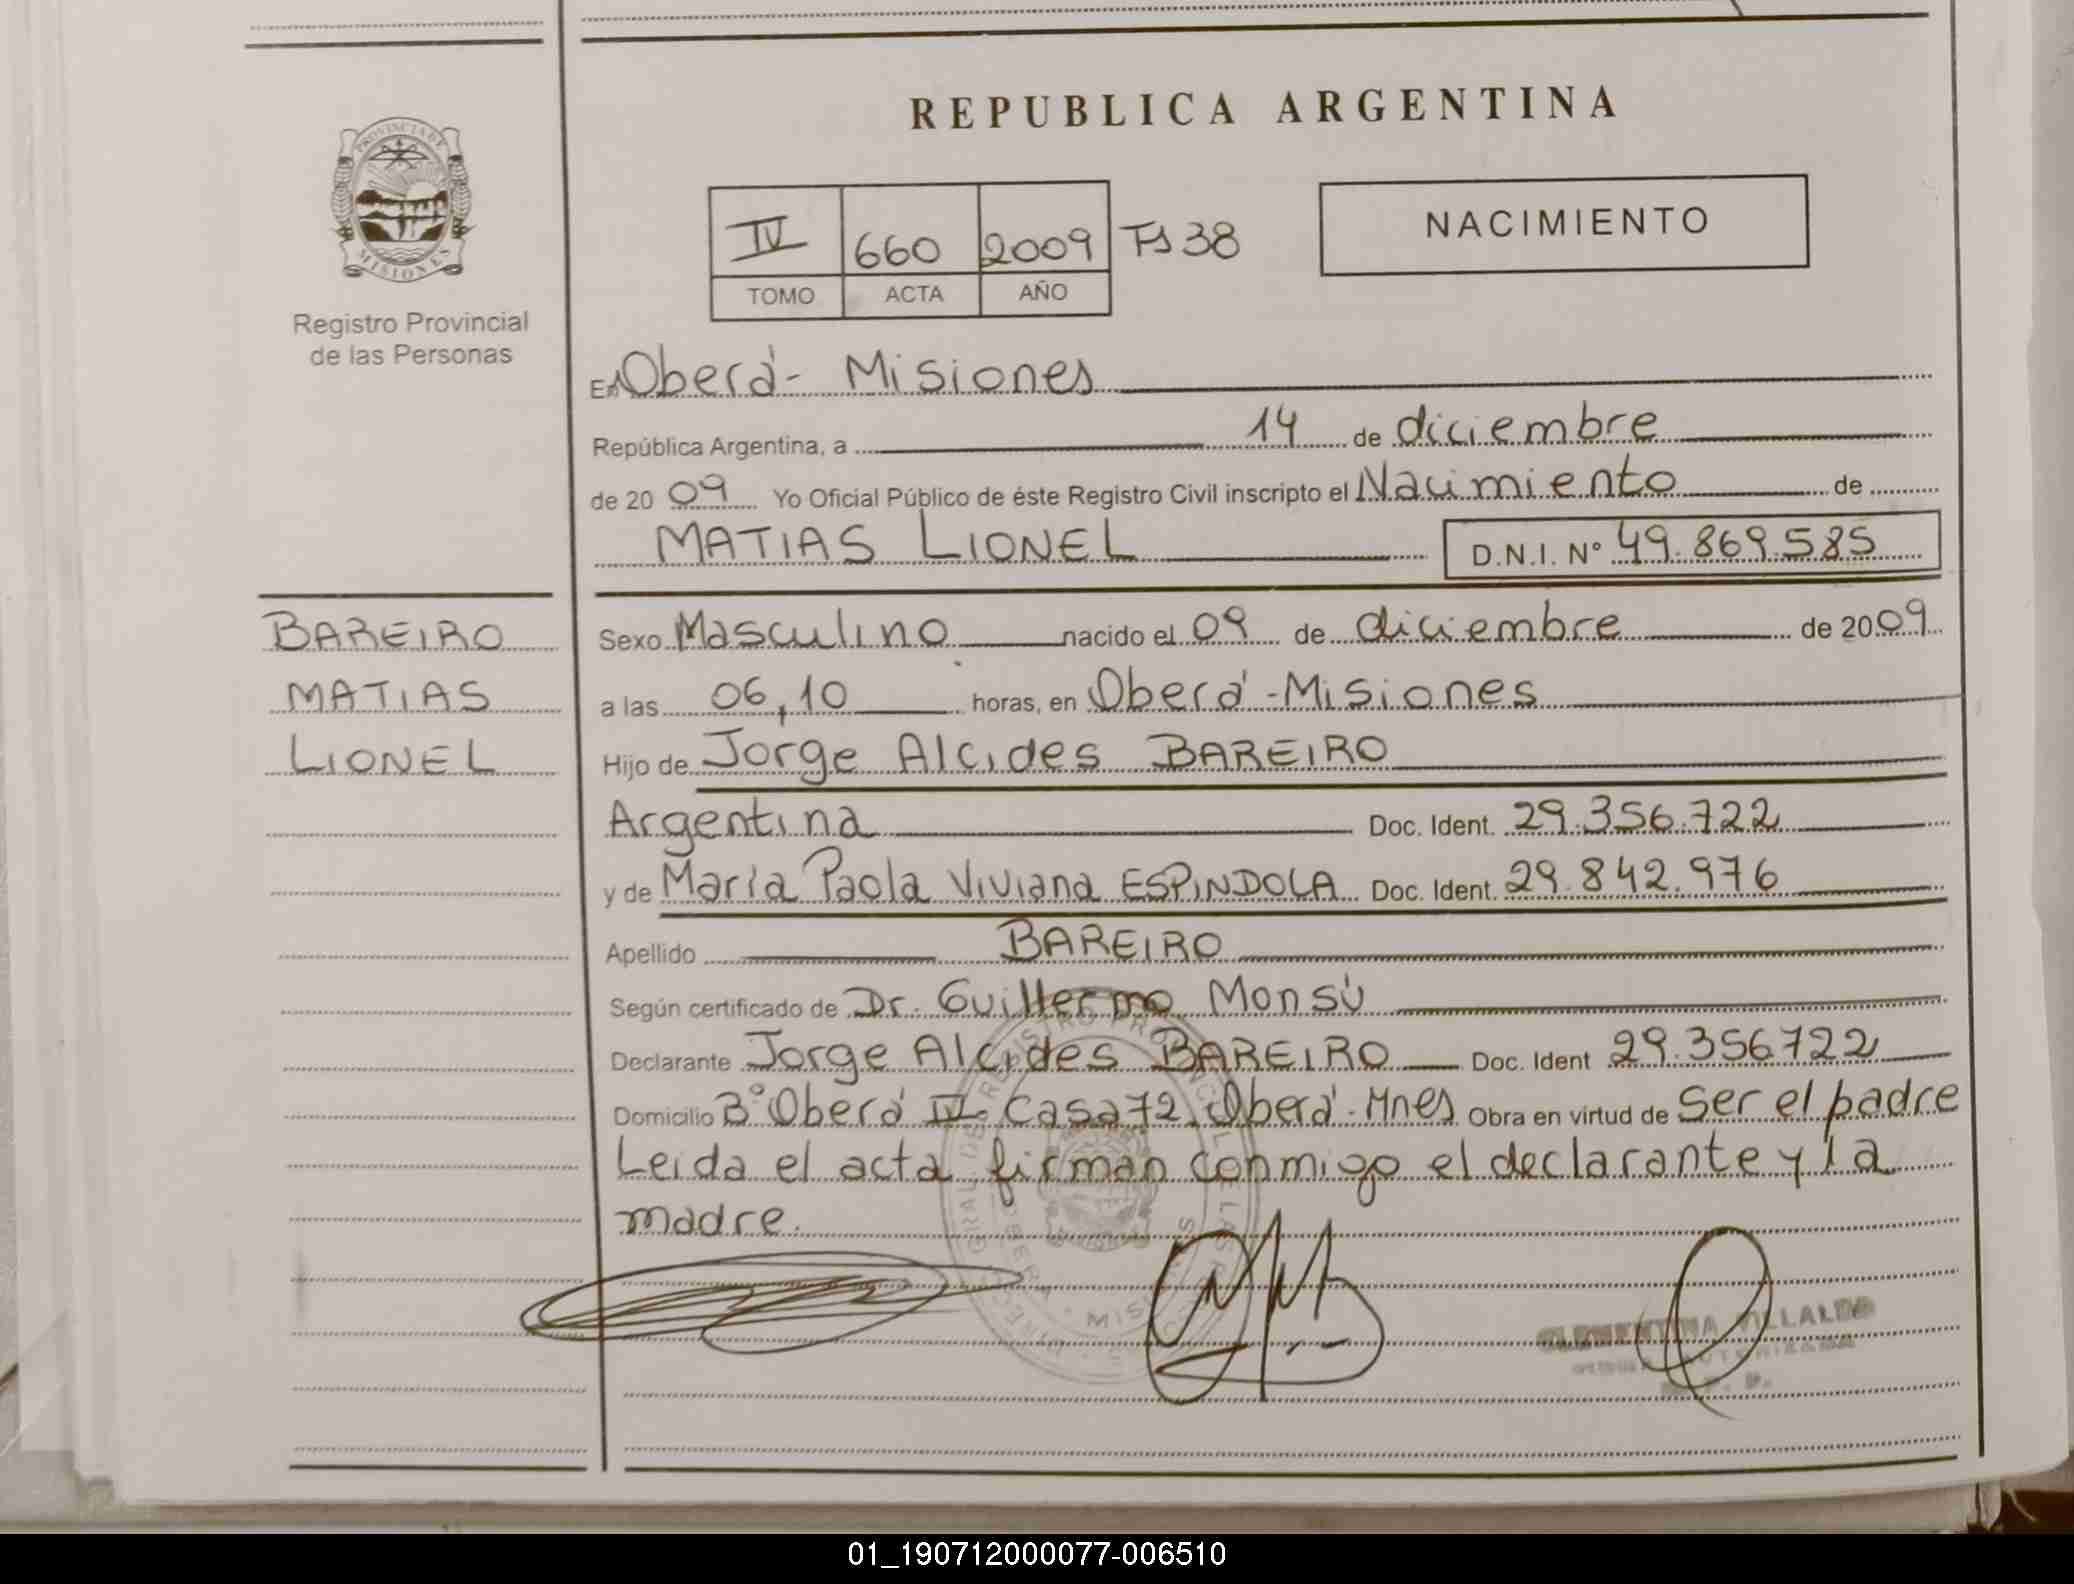 REPUBLICA ARGENTINA
PROVINCIA DE
MISIONES
Registro Provincial
de las Personas
IV 660 2009 Fs 38
TOMO ACTA AÑO
NACIMIENTO
En Oberá - Misiones
República Argentina, a 14 de diciembre
de 2009 Yo Oficial Público de éste Registro Civil inscripto el Nacimiento de
MATIAS LIONEL D.N.I. Nº 49.869.585
BAREIRO
MATIAS
LIONEL
Sexo Masculino nacido el 09 de diciembre de 2009
a las 06,10 horas, en Oberá - Misiones
Hijo de Jorge Alcides BAREIRO
Argentina Doc. Ident. 29.356.722
y de María Paola Viviana ESPINDOLA Doc. Ident. 29.842.976
Apellido BAREIRO
Según certificado de Dr. Guillermo Monsú
Declarante Jorge Alcides BAREIRO Doc. Ident 29.356722
Domicilio Bº Oberá IV. Casa 72, Oberá - Mnes Obra en virtud de Ser el padre
Leida el acta firman conmigo el declarante y la
madre.
CLEMENTINA VILLALBA
01_190712000077-006510